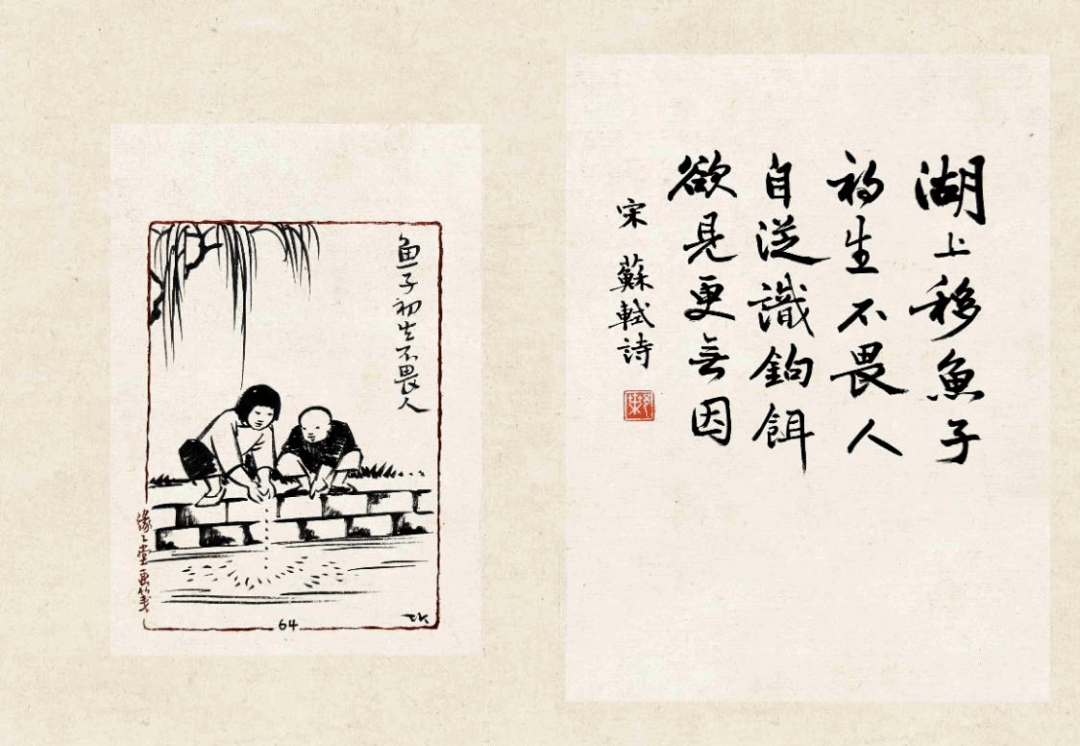 湖上移魚子
初生不畏人
自從識鉤餌
欲見更無因
宋 蘇軾詩
鱼子初生不畏人
緣々堂画笺
64
TK